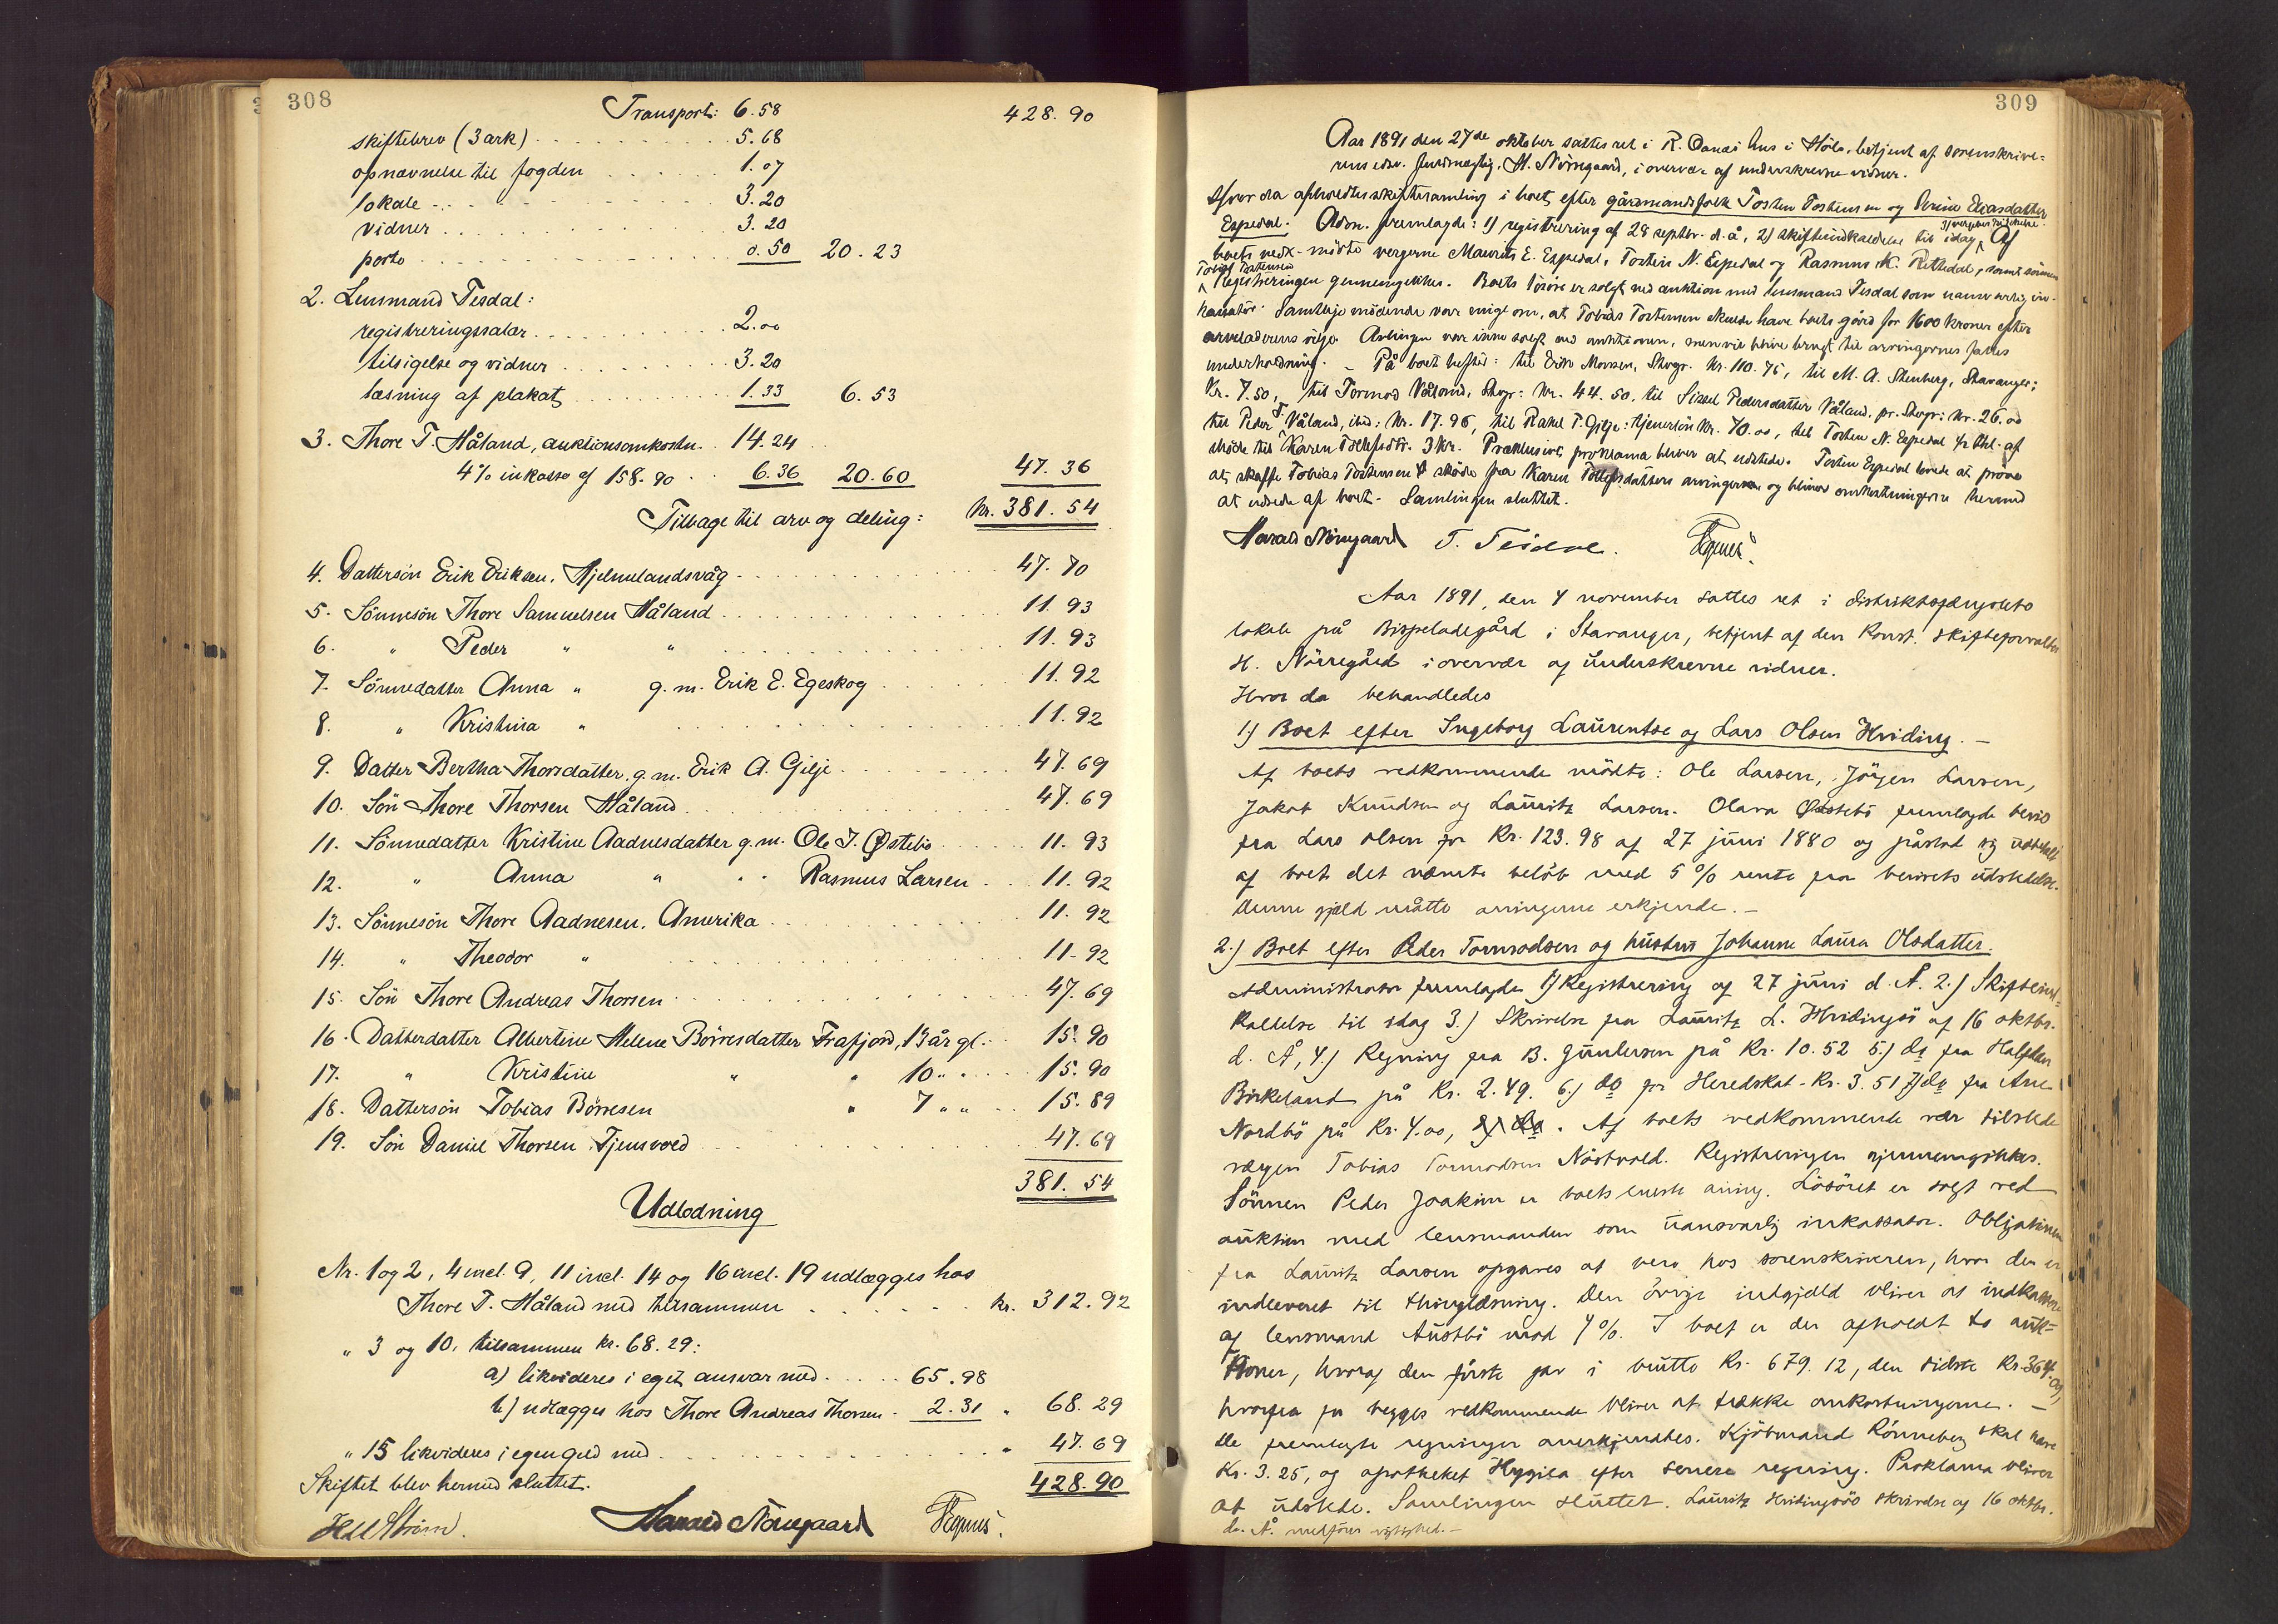 308
Transport: 6.58 428.90
skiftebrev (3 ark) 5.68
opnævnelse til fogden 1.07
lokale 3.20
vidner 3.20
porto 0.50 20.23
2. Lensmand Tesdal:
registreringssalær 2.00
tilsigelse og vidner 3.20
læsning af plakat 1.33 6.53
3. Thore T. Håland, auktionsomkostn. 14.24
4% inkasso af 158.90 6.36 20.60 47.36
Tilbage til arv og deling: kr. 381.54
4. Dattersön Erik Eriksen, Hjelmelandsvåg 47.70
5. Sönnesön Thore Samuelsen Håland 11.93
6. " Peder " " 11.93
7. Sönnedatter Anna " g.m. Erik E. Egeskog 11.92
8. " Kristina " 11.92
9. Datter Bertha Thorsdatter g.m. Erik A. Gilje 47.69
10. Sön Thore Thorsen Håland 47.69
11. Sönnedatter Kristine Aadnesdatter g.m. Ole J. Østebö 11.93
12. " Anna " " " Rasmus Larsen 11.92
13. Sönnesön Thore Aadnesen, Amerika 11.92
14. " Theodor " 11.92
15. Sön Thore Andreas Thorsen 47.69
16. Datterdatter Albertine Helene Börresdatter Frafjord, 13 år gl. 15.90
17. " Kristine " " 10 " " 15.90
18. Dattersön Tobias Börresen " 7 " " 15.89
19. Sön Daniel Thorsen Tjensvold 47.69
381.54
Udlodning
Nr. 1 og 2, 4 incl. 9, 11 incl. 14 og 16 incl. 19 udlægges hos
Thore T. Håland med tilsammen kr. 312.92
" 3 og 10, tilsammen kr. 68.29:
a) likvideres i eget ansvar med 65.98
b) udlægges hos Thore Andreas Thorsen 2.31 " 68.29
" 15 likvideres i egen gjeld med " 47.69
Skiftet blev hermed sluttet. 428.90
Harald Nörregaard
309
Aar 1891 den 27de oktober sattes ret i R. Oanæs hus i Höle, betjent af sorenskrive-
rens edsv. fuldmægtig, H. Nörregaard, i overvær af underskrevne vidner.
Hvor da afholdtes skiftesamling i boet efter gårmandsfolk Tosten Tostensen og Serine Eliasdatter
Espedal. Adm. fremlagde: 1) registrering af 28 septbr. d. å, 2) skifteindkaldelse til idag, Af
boets vedk. mödte vergerne Maurits E. Espedal, Tosten N. Espedal og Rasmus K. Rettedal, samt sönnen
Tobias Tostensen
Registreringen gjennemgikkes. Boets lösöre er solgt ved auktion med lensmand Tesdal som uansvarlig in-
kassatör. Samtlige mödende var enige om, at Tobias Tostensen skulde have boets gård for 1600 kroner efter
arveladerens vilje. Avlingen var ikke solgt ved auktionen, men vil blive brugt til arvingernes fælles
underholdning. – På boet hefted: til Erik Monsen, Stvgr. kr. 110.75, til M. A. Stenberg, Stavanger:
Kr. 7.50, til Tormod Våland, Stvgr: kr. 44.50, til Sissel Pedersdatter Våland, pr. Stvgr: kr. 26.00
til Peder T. Våland, ibid: kr. 17.96, til Rakel P. Gilje: tjenerlön kr. 70.00, til Tosten N. Espedal
sköde til Karen Tollefsdtr. 3 Kr. Præklusivt proklama bliver at udstede. Tosten Espedal lovede at pröve
at skaffe Tobias Tostensen sköde fra Karen Tollefsdatters arvinger og bliver omkostningerne herved
at udrede af boet. Samlingen sluttet.
Harald Nörregaard T. Tesdal.
Aar 1891, den 4 november sattes ret i distriktsfængslets
lokale på Bispeladegård i Stavanger, betjent af den konst. skifteforvalter
H. Nörregård i overvær af underskrevne vidner.
Hvor da behandledes
1) Boet efter Ingeborg Lauretse og Lars Olsen Hviding. –
Af boets vedkommende mödte: Ole Larsen, Jörgen Larsen,
Jakob Knudsen og Lauritz Larsen. Olava Østebö fremlagde bevis
fra Lars Olsen for Kr. 123.98 af 27 juni 1880 og påstod sig udbetalt
af boet det nævnte belöb med 5% rente fra bevisets udstedelse.
Denne gjæld måtte arvingerne erkjende. –
2.) Boet efter Peder Tormodsen og hustru Johanne Laura Olsdatter.
Administrator fremlagde 1) Registrering af 27 juni d. Å. 2.) Skifteind-
kaldelse til idag 3.) Skrivelse fra Lauritz L. Hvidingsö af 16 oktbr.
d. Å, 4.) Regning fra B. Gundersen på Kr. 10.52 5.) do fra Halfdan
Birkeland på Kr. 2.49. 6.) do for Heredskat - Kr. 3.51 7) do fra Arne
Nordbö på Kr. 4.00, . Af boets vedkommende var tilstede
værgen Tobias Tormodsen Nåstvold. Registreringen gjennemgikkes.
Sönnen Peder Joakim er boets eneste arving. Lösöret er solgt ved
auktion med lensmanden som uansvarlig inkassator. Obligationen
fra Lauritz Larsen opgaves at være hos sorenskriveren, hvor den er
indleveret til thinglæsning. Den övrige indgjæld bliver at indkassere
af lensmand Austbö mod 4%. I boet er der afholdt to auk-
tioner, hvoraf den förste gav i brutto Kr. 679.12, den sidste Kr. 364.09,
hvorfra for begges vedkommende bliver at trække omkostningerne. –
De fremlagte regninger anerkjendtes. Kjöbmand Rönneberg skal have
Kr. 3.25, og apotheket Hygiea efter senere regning. Proklama bliver
at udstede. Samlingen sluttet. Lauritz Hvidingsös skrivelse af 16 oktbr.
d. Å. medförer rigtighed. –